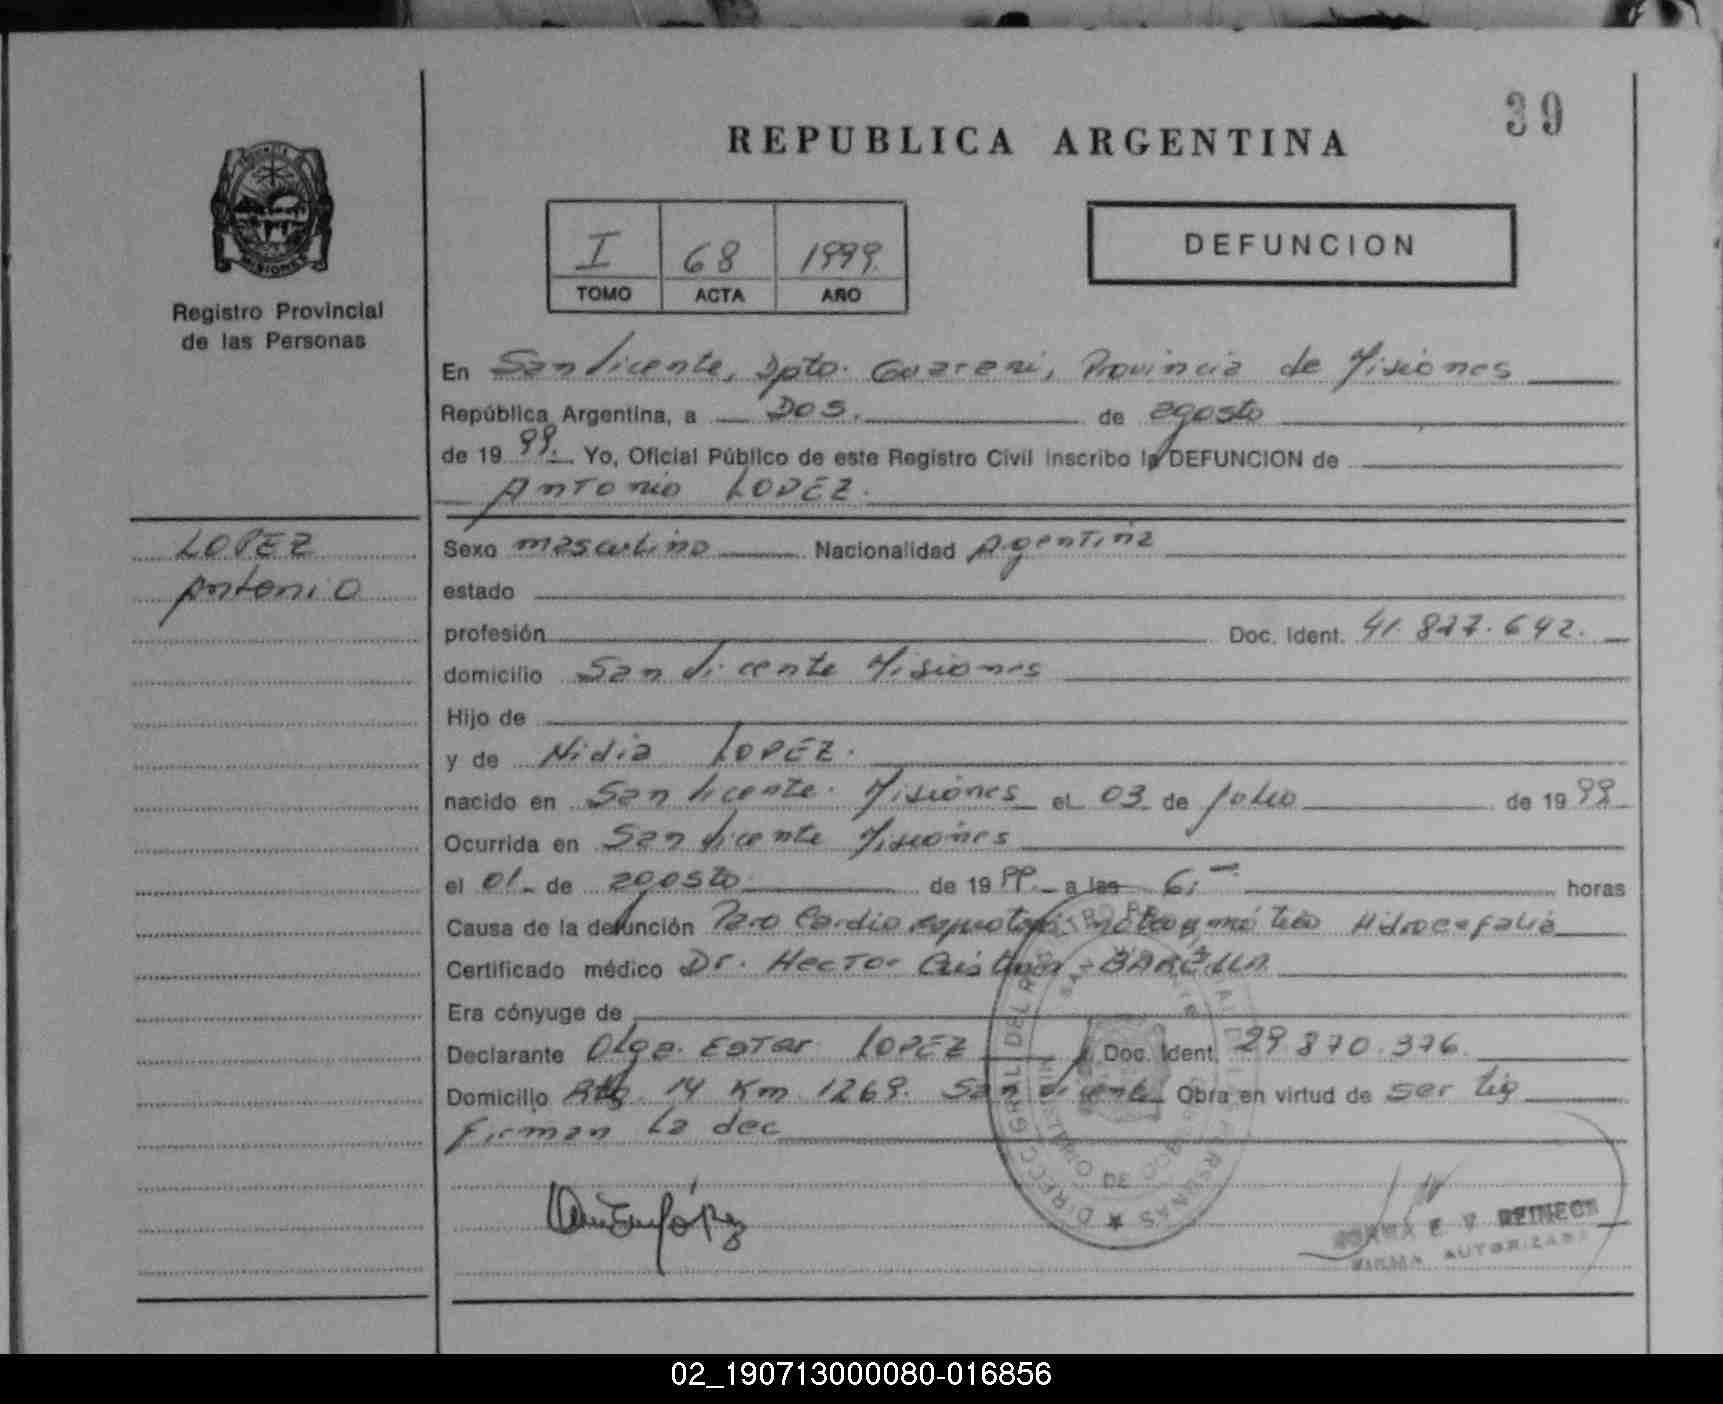 39
REPUBLICA ARGENTINA
I 68 1999
TOMO ACTA AÑO
DEFUNCION
PROVINCIA DE
MISIONES
Registro Provincial
de las Personas
En San Vicente, Dpto. Guarani, Provincia de Misiones
República Argentina, a Dos. de agosto
de 1999. Yo, Oficial Público de este Registro Civil inscribo la DEFUNCION de
Antonio LOPEZ.
LOPEZ
Antonio
Sexo masculino Nacionalidad Argentina
estado
profesión Doc. Ident. 41.827.642.
domicilio San Vicente Misiones
Hijo de
y de Nidia LOPEZ.
nacido en San Vicente. Misiones el 03 de Julio de 1999
Ocurrida en San Vicente Misiones
el 01 de agosto de 1999 a las 6,- horas
Causa de la defunción Paro Cardio Hidrocefalia
Certificado médico Dr. Hector
Era cónyuge de
Declarante Olga Ester LOPEZ Doc. Ident. 29.870.376.
Domicilio Rta. 14 Km 1269. San Vicente Obra en virtud de ser tia
firman la dec
DIRECC. GRAL. DEL REGISTRO PROVINCIAL DE LAS PERSONAS
SAN VICENTE
E. V. REINECK
FIRMA AUTORIZADA
02_190713000080-016856